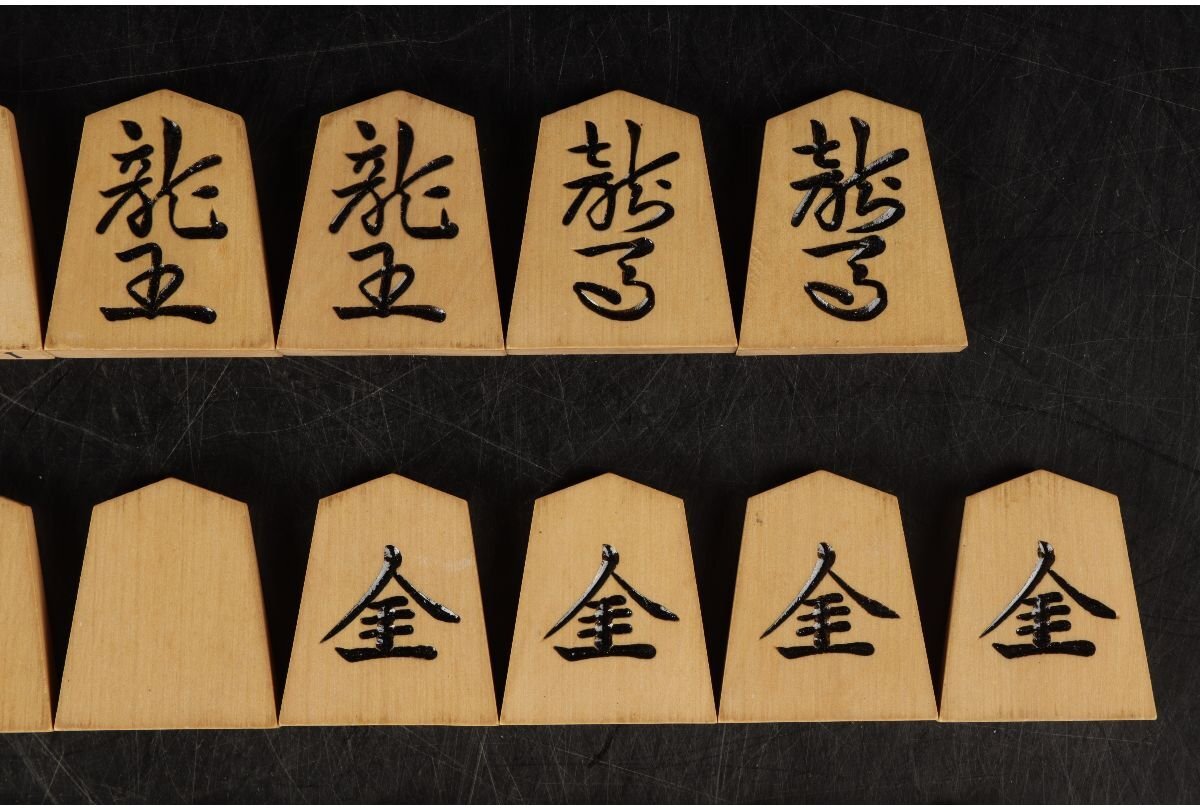 龍王
龍王
龍馬
龍馬
金
金
金
金